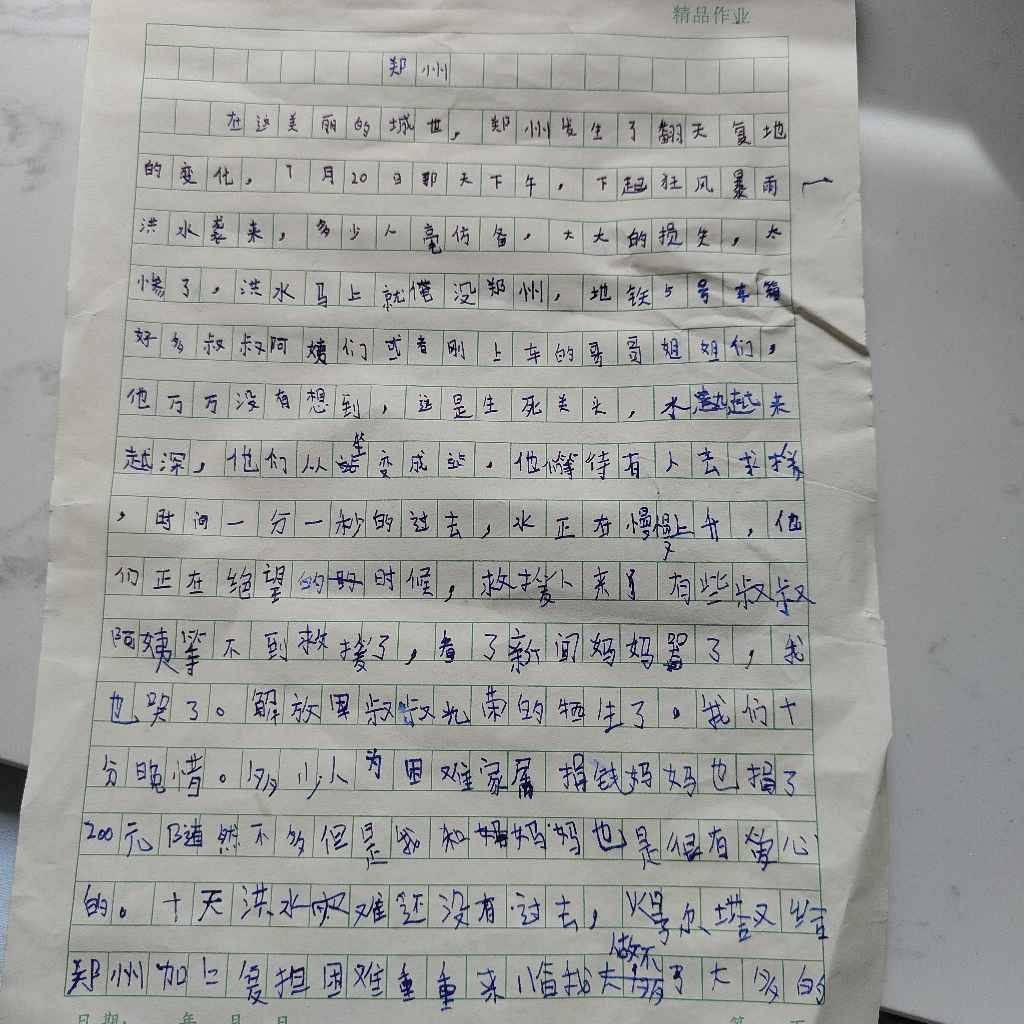 精品作业
郑州
在这美丽的城世，郑州发生了翻天复地
的变化，7月20日那天下午，下起狂风暴雨
洪水袭来，多少人毫伤备，大大的损失，太
惨了，洪水马上就俺没郑州，地铁5号车箱
好多叔叔阿姨们或者刚上车的哥哥姐姐们，
他万万没有想到，这是生死关头，水越来
越深，他们从坐变成站，他们等待有人去求援
，时间一分一秒的过去，水正在慢慢上升，他
们正在绝望的时候，救援人来了有些叔叔
阿姨等不到救援了，看了新闻妈妈哭了，我
也哭了。解放军叔叔光荣的牺生了。我们十
分晚惜。多少人为困难家属捐钱妈妈也捐了
200元随然不多但是我和妈妈也是很有爱心
的。十天洪水灾难还没有过去，德尔塔又给
郑州加上复担困难重重来惜我做不了大多的
日期： 年 月 日 第 页